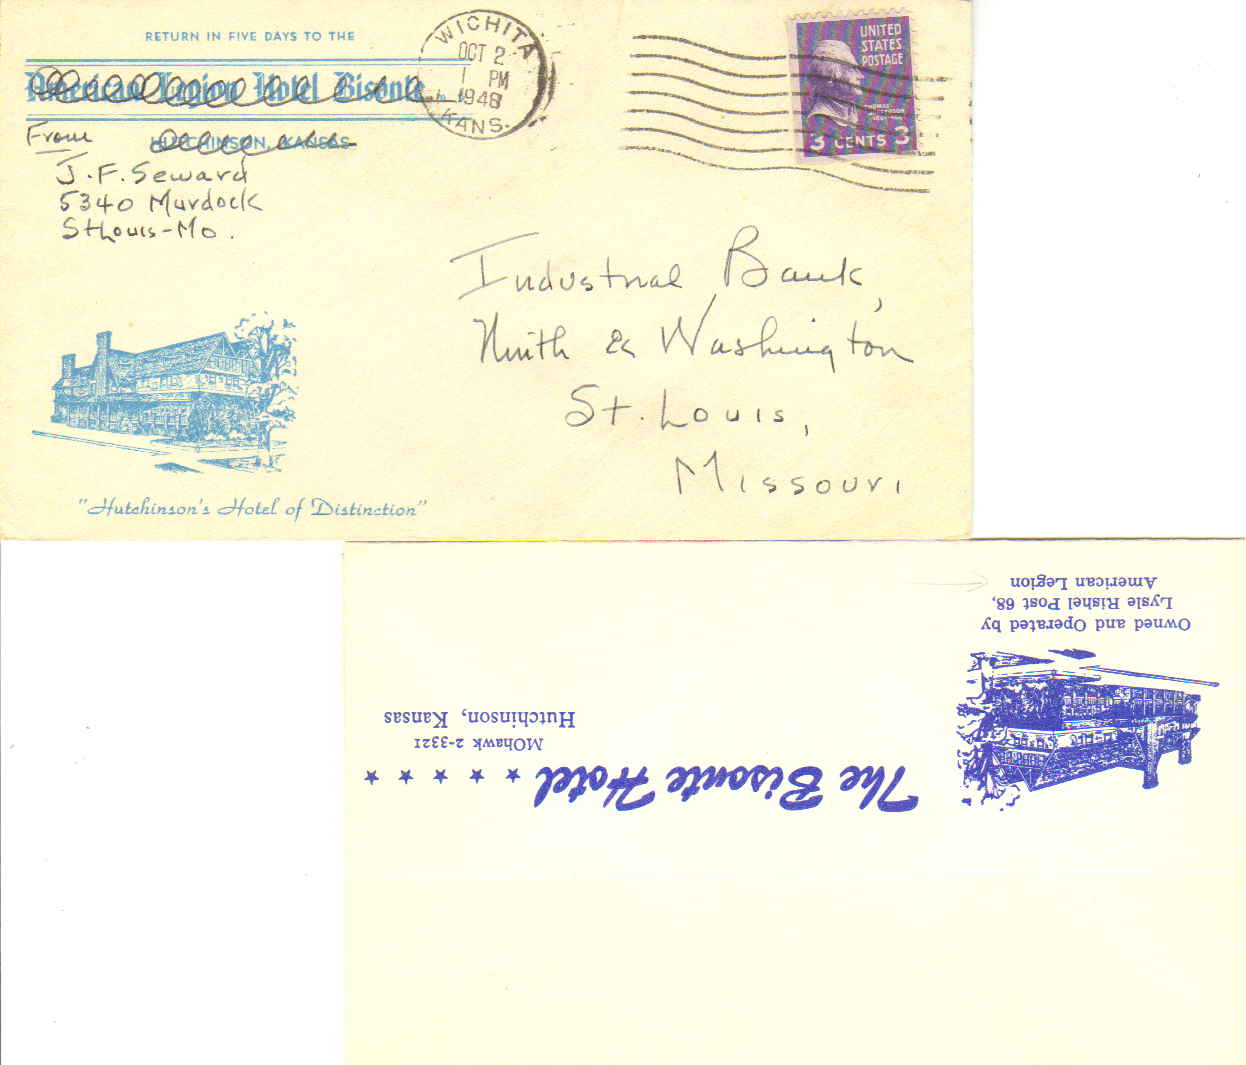 RETURN IN FIVE DAYS TO THE
American Legion Hotel Bisonte
HUTCHINSON, KANSAS
From
J. F. Seward
5340 Murdock
St Louis-Mo.
WICHITA
OCT 2
1 PM
1948
KANS.
UNITED
STATES
POSTAGE
THOMAS
JEFFERSON
3 CENTS 3
Industrial Bank,
Ninth & Washington
St. Louis,
Missouri
"Hutchinson's Hotel of Distinction"
The Bisonte Hotel ★ ★ ★ ★ ★
MOhawk 2-3321
Hutchinson, Kansas
Owned and Operated by
Lysle Rishel Post 68,
American Legion